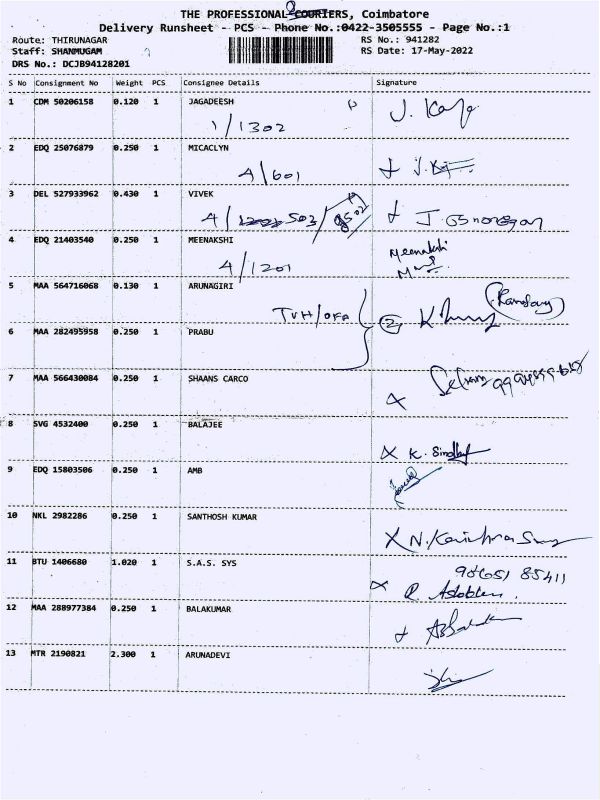 THE PROFESSIONAL COURIERS, Coimbatore
Delivery Runsheet - PCS - Phone No.:0422-3505555 - Page No.:1
Route: THIRUNAGAR RS No.: 941282
Staff: SHANMUGAM RS Date: 17-May-2022
DRS No.: DCJB94128201
S No Consignment No Weight PCS Consignee Details Signature
1 CDM 50206158 0.120 1 JAGADEESH
1/1302
2 EDQ 25076879 0.250 1 MICACLYN
4/601
3 DEL 527933962 0.430 1 VIVEK
4/ 503
4 EDQ 21403540 0.250 1 MEENAKSHI Meenakshi
4/1201
5 MAA 564716068 0.130 1 ARUNAGIRI
TVH/OFA 2
6 MAA 282495958 0.250 1 PRABU
7 MAA 566430084 0.250 1 SHAANS CARCO
8 SVG 4532400 0.250 1 BALAJEE
9 EDQ 15803506 0.250 1 AMB
10 NKL 2982286 0.250 1 SANTHOSH KUMAR
11 BTU 1406680 1.020 1 S.A.S. SYS
98651 85411
12 MAA 288977384 0.250 1 BALAKUMAR
13 MTR 2190821 2.300 1 ARUNADEVI